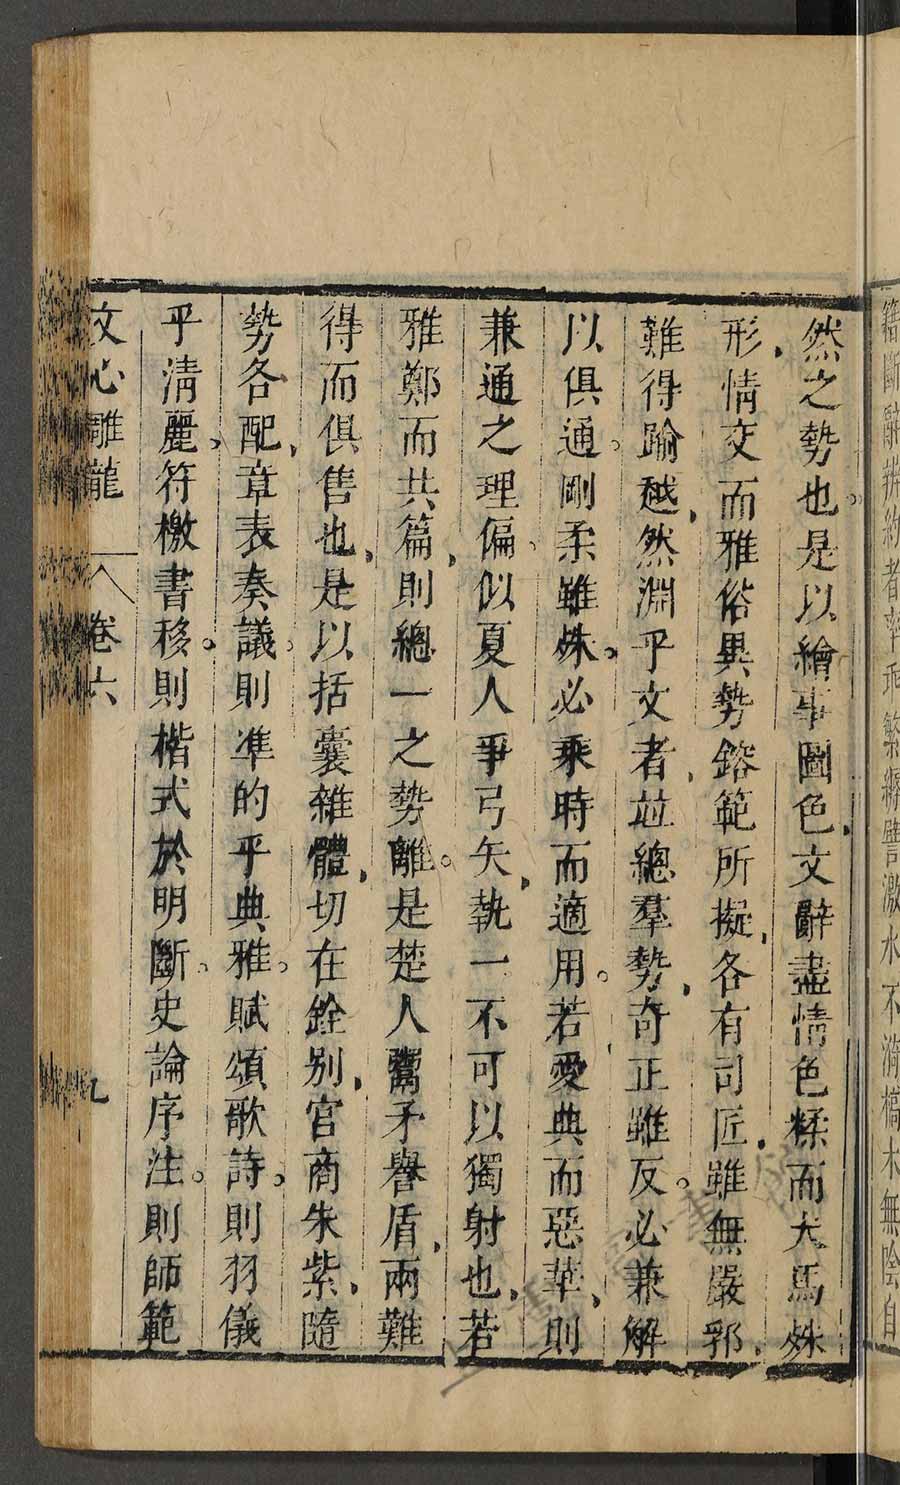 籍斷辭辨約者率乖繁縟譬激水不漪槁木無陰自
然之勢也是以繪事圖色文辭盡情色糅而犬馬殊
形情交而雅俗異勢鎔範所擬各有司匠雖無嚴郛
難得踰越然淵乎文者並總羣勢奇正雖反必兼解
以俱通剛柔雖殊必乘時而適用若愛典而惡華則
兼通之理偏似夏人爭弓矢執一不可以獨射也若
雅鄭而共篇則總一之勢離是楚人鬻矛譽盾兩難
得而俱售也是以括囊雜體切在銓别宫商朱紫隨
勢各配章表奏議則凖的乎典雅賦頌歌詩則羽儀
乎清麗符檄書移則楷式於明斷史論序注則師範
文心雕龍 卷六 九